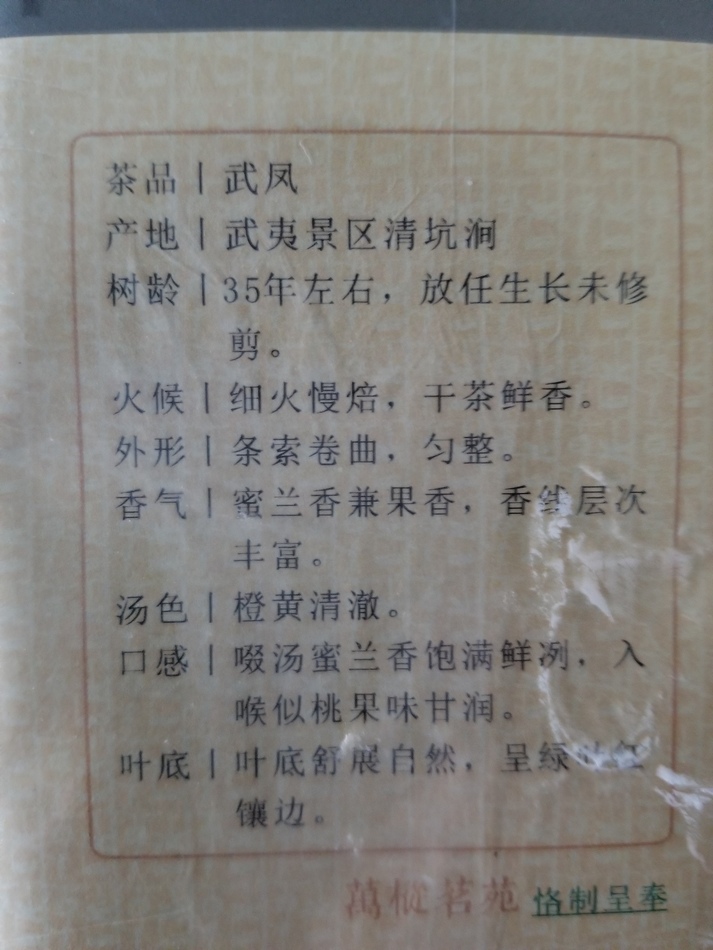 茶品丨武凤
产地丨武夷景区清坑涧
树龄丨35年左右，放任生长未修
剪。
火候丨细火慢焙，干茶鲜香。
外形丨条索卷曲，匀整。
香气丨蜜兰香兼果香，香线层次
丰富。
汤色丨橙黄清澈。
口感丨啜汤蜜兰香饱满鲜冽，入
喉似桃果味甘润。
叶底丨叶底舒展自然，呈绿叶红
镶边。
萬樅茗苑 恪制呈奉